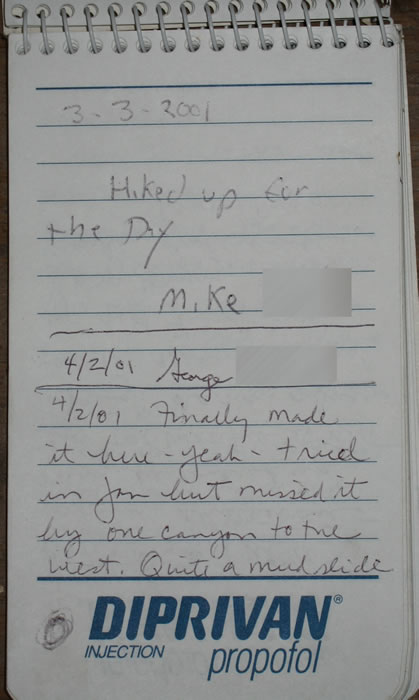 3-3-2001
Hiked up for
the Day
Mike
4/2/01 George
4/2/01 Finally made
it here - yeah - tried
in Jan but missed it
by one canyon to the
west. Quite a mudslide
DIPRIVAN®
INJECTION propofol